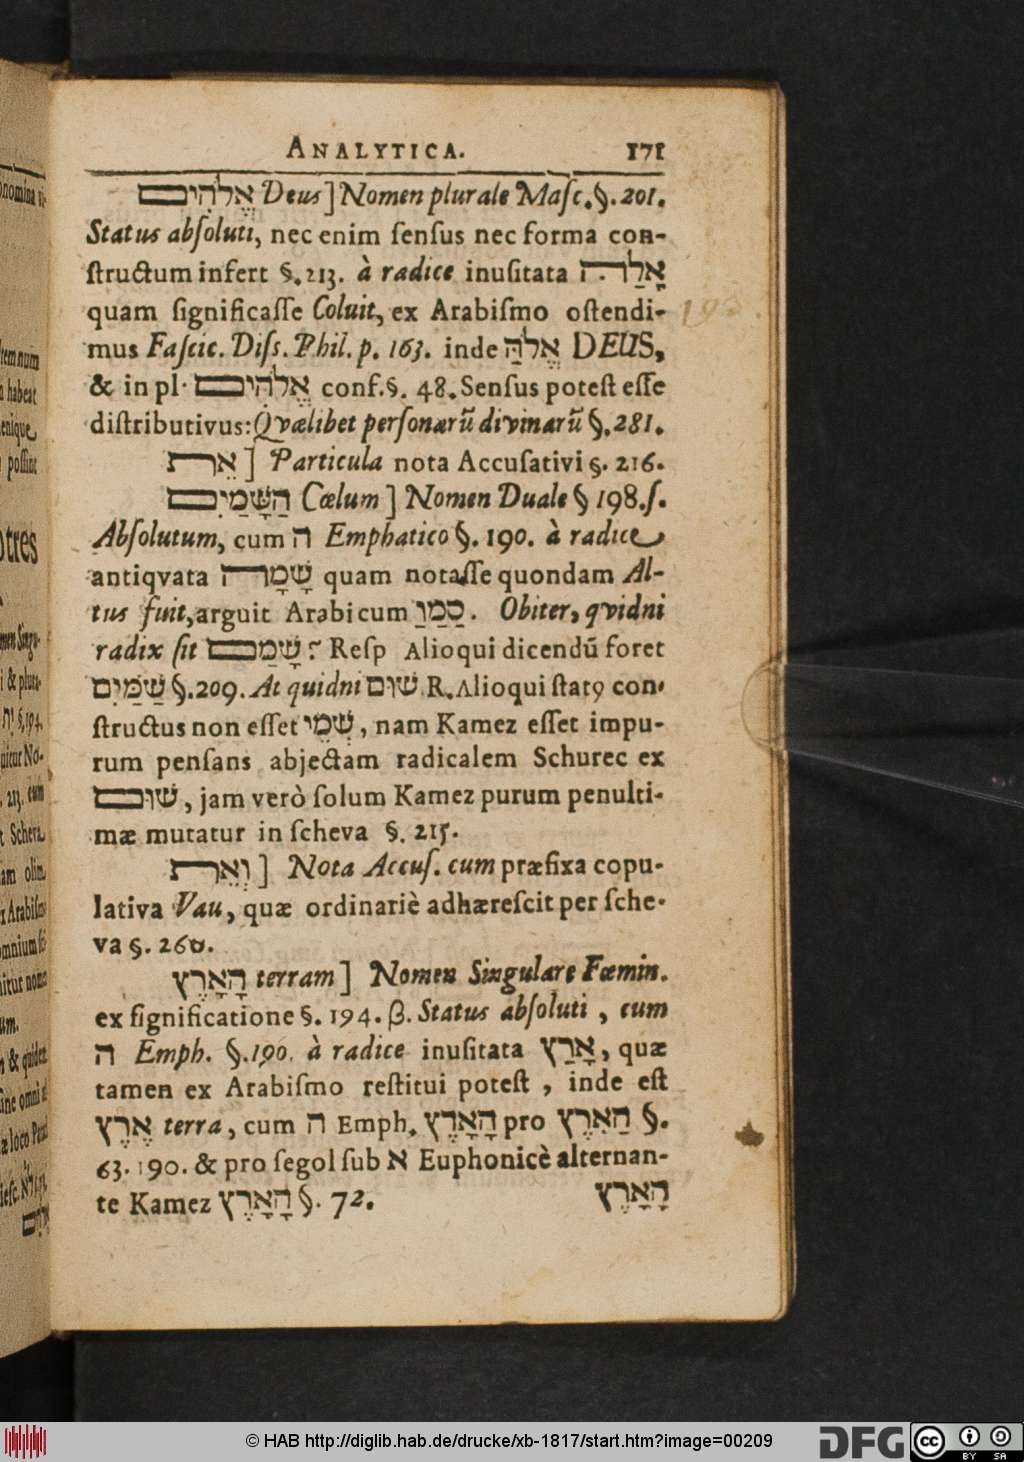 ANALYTICA. 171
אֱלֹהִים Deus] Nomen plurale Maſc. §. 201.
Status abſoluti, nec enim ſenſus nec forma con-
ſtructum infert §. 213. à radice inuſitata אָלַה
quam ſignificaſſe Coluit, ex Arabiſmo oſtendi-
mus Faſcic. Diſs. Phil. p. 163. inde אֱלֹהַּ DEUS,
& in pl. אֱלֹהִים conf. §. 48. Senſus poteſt eſſe
diſtributivus: Qvælibet perſonarũ divinarũ §. 281.
אֵת] Particula nota Accuſativi §. 216.
הַשָּׁמַיִם Cœlum] Nomen Duale § 198. ſ.
Abſolutum, cum ה Emphatico §. 190. à radice
antiqvata שָׁמָה quam notaſſe quondam Al-
tus fuit, arguit Arabicum סַמַו. Obiter, qvidni
radix ſit שָׁמַם? Reſp Alioqui dicendũ foret
שַׁמִּים §. 209. At quidni שׁוּם R. Alioqui ſtatꝰ con-
ſtructus non eſſet שְׁמֵי, nam Kamez eſſet impu-
rum penſans abjectam radicalem Schurec ex
שׁוּם, jam verò ſolum Kamez purum penulti-
mæ mutatur in ſcheva §. 215.
וְאֵת] Nota Accuſ. cum præfixa copu-
lativa Vau, quæ ordinariè adhæreſcit per ſche-
va §. 260.
הָאָרֶץ terram] Nomen Singulare Fœmin.
ex ſignificatione §. 194. β. Status abſoluti, cum
ה Emph. §. 190. à radice inuſitata אָרַץ, quæ
tamen ex Arabiſmo reſtitui poteſt, inde eſt
אֶרֶץ terra, cum ה Emph. הָאָרֶץ pro הַאֶרֶץ §.
63. 190. & pro ſegol ſub א Euphonicè alternan-
te Kamez הָאָרֶץ §. 72.
הָאָרֶץ
© HAB http://diglib.hab.de/drucke/xb-1817/start.htm?image=00209
DFG
cc BY SA